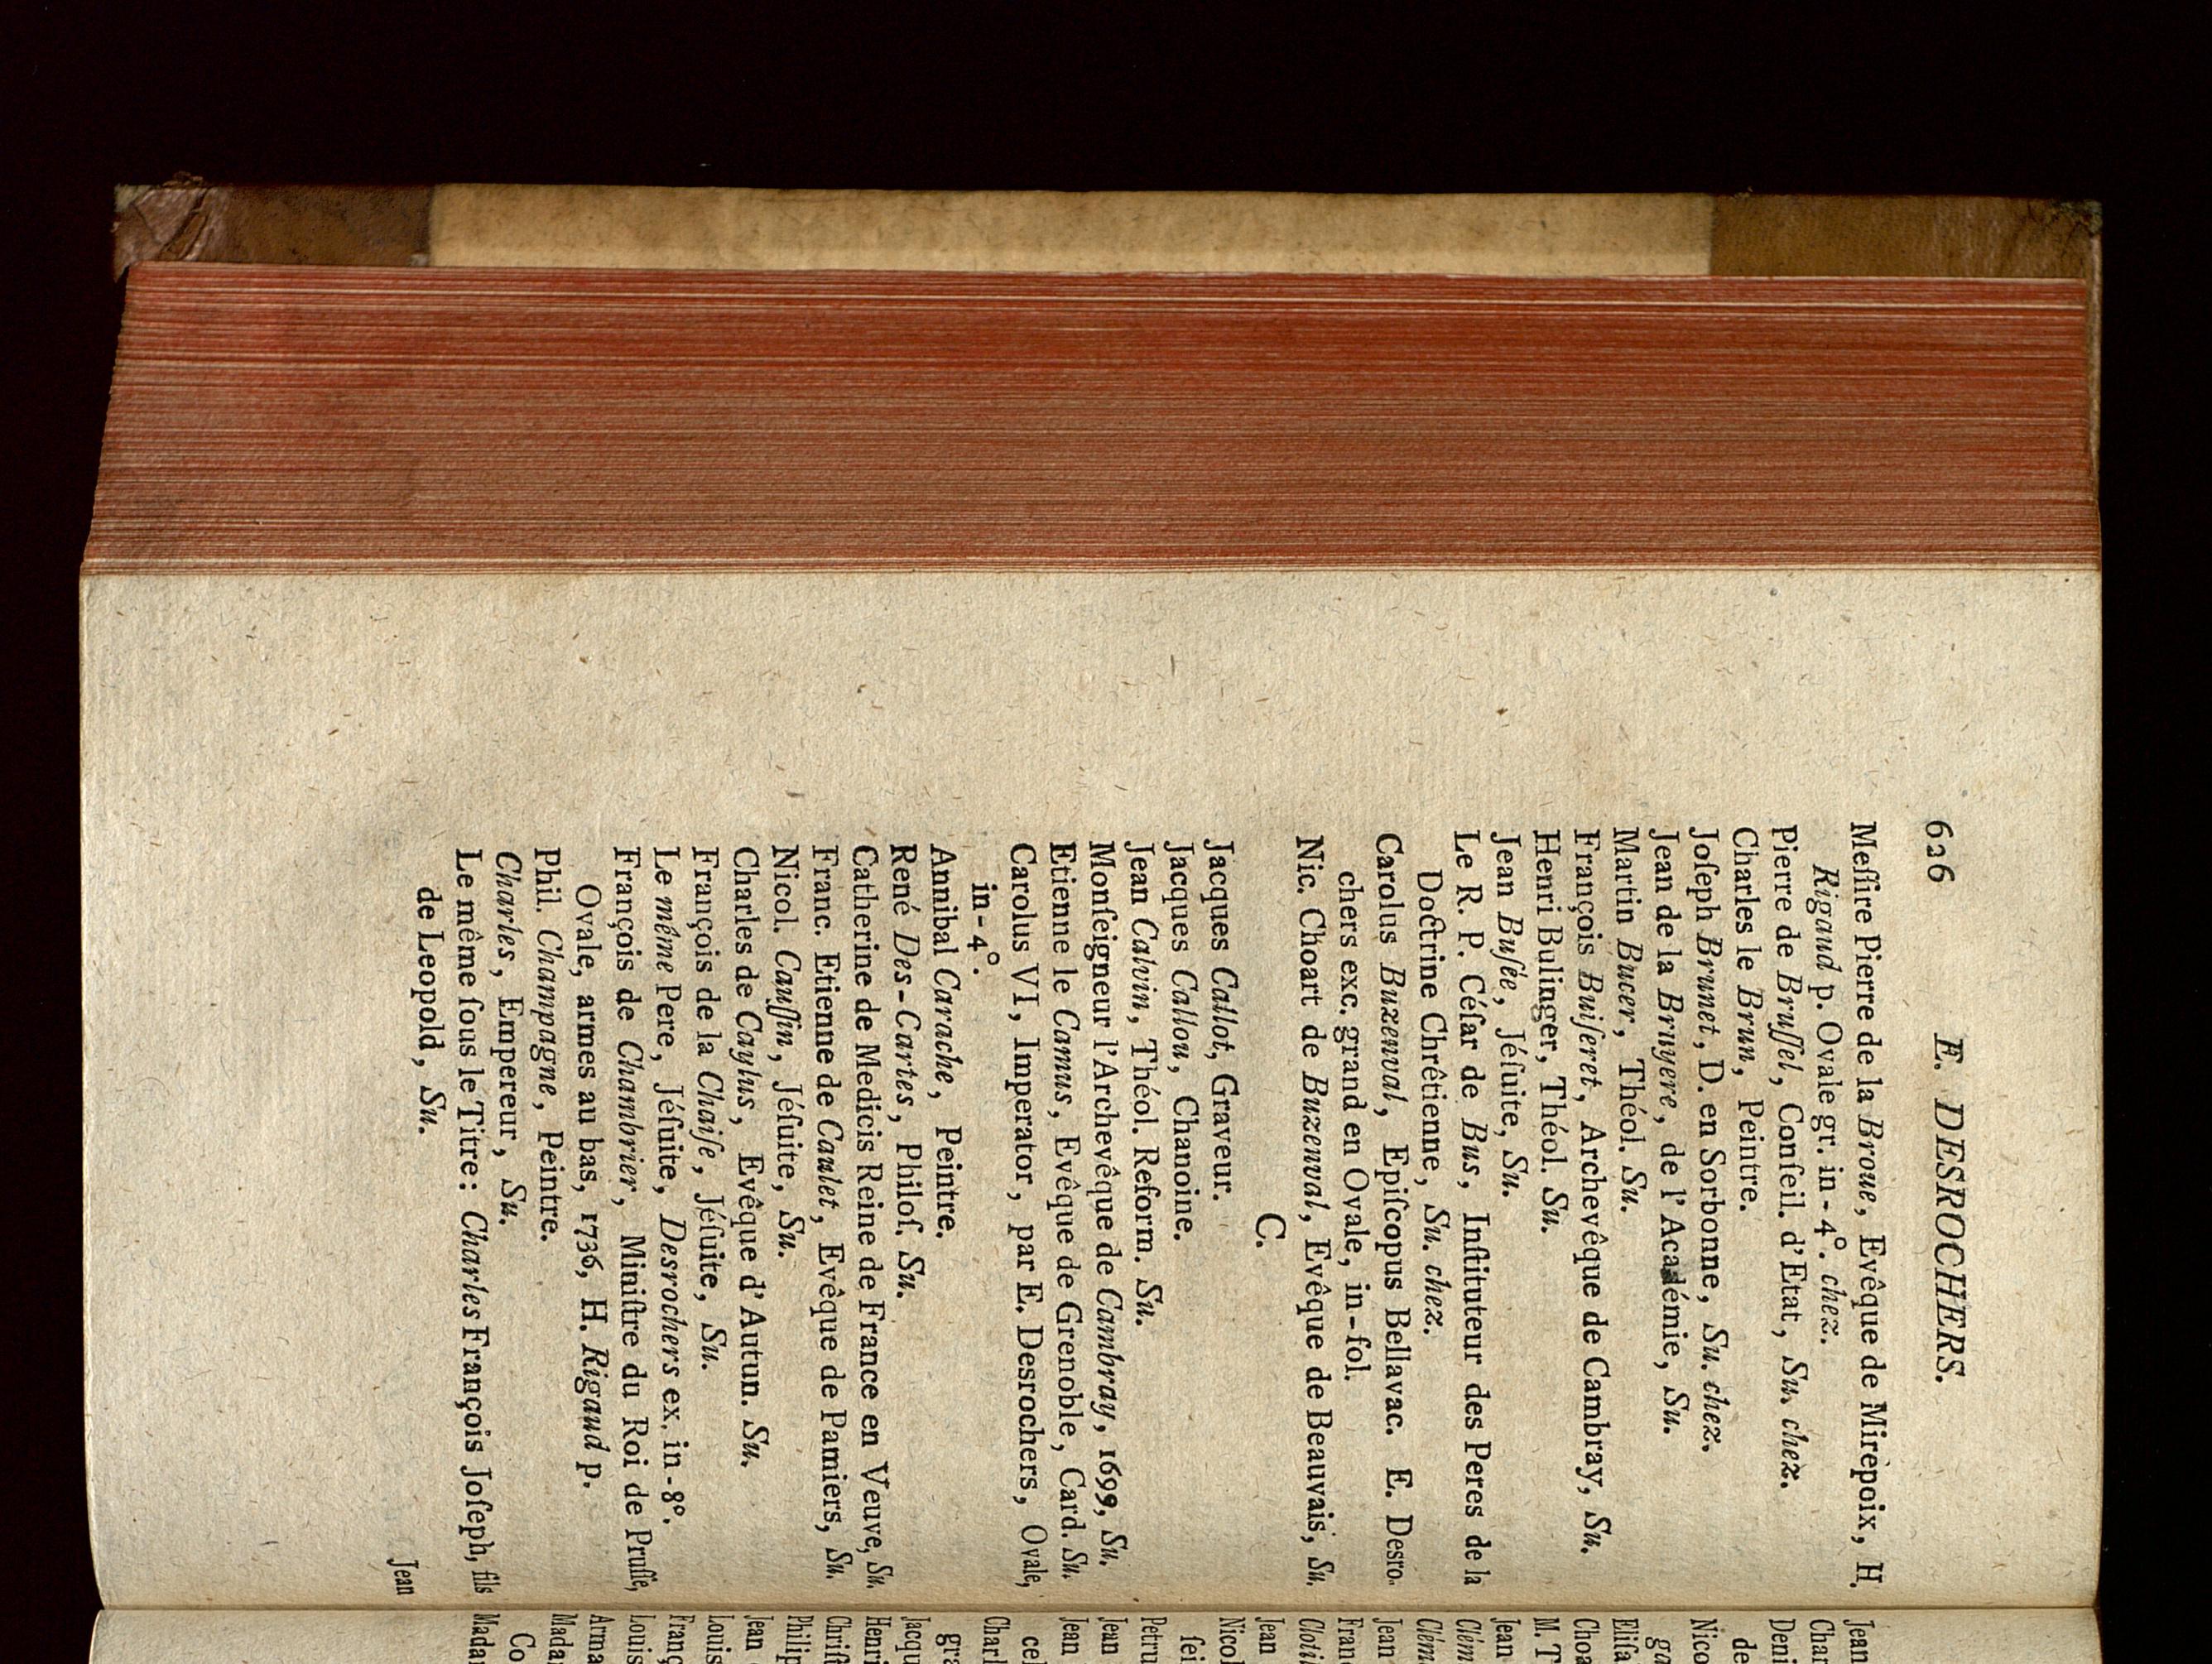 626 E. DESROCHERS.
Meſſire Pierre de la Broue, Evêque de Mirèpoix, H.
Rigaud p. Ovale gr. in-4°. chez.
Pierre de Bruſſel, Conſeil. d'Etat, Su. chez.
Charles le Brun, Peintre.
Joſeph Brunet, D. en Sorbonne, Su. chez.
Jean de la Bruyere, de l'Académie, Su.
Martin Bucer, Théol. Su.
François Buiſeret, Archevêque de Cambray, Su.
Henri Bulinger, Théol. Su.
Jean Buſée, Jéſuite, Su.
Le R. P. Céſar de Bus, Inſtituteur des Peres de la
Doctrine Chrêtienne, Su. chez.
Carolus Buzenval, Epiſcopus Bellavac. E. Desro-
chers exc. grand en Ovale, in-fol.
Nic. Choart de Buzenval, Evêque de Beauvais, Su.
C.
Jacques Callot, Graveur.
Jacques Callou, Chanoine.
Jean Calvin, Théol. Reform. Su.
Monſeigneur l'Archevêque de Cambray, 1699, Su.
Etienne le Camus, Evêque de Grenoble, Card. Su.
Carolus VI, Imperator, par E. Desrochers, Ovale,
in-4°.
Annibal Carache, Peintre.
René Des-Cartes, Philoſ. Su.
Catherine de Medicis Reine de France en Veuve, Su.
Franc. Etienne de Caulet, Evêque de Pamiers, Su.
Nicol. Cauſſin, Jéſuite, Su.
Charles de Caylus, Evêque d'Autun. Su.
François de la Chaiſe, Jéſuite, Su.
Le même Pere, Jéſuite, Desrochers ex. in-8°.
François de Chambrier, Miniſtre du Roi de Pruſſe,
Ovale, armes au bas, 1736, H. Rigaud p.
Phil. Champagne, Peintre.
Charles, Empereur, Su.
Le même ſous le Titre: Charles François Joſeph, fils
de Leopold, Su.
Jean
Jean
Char
Deni
de
Nico
ga
Eliſa
Choa
M. T
Jean
Clém
Clém
Jean
Franc
Cloti
Jean
Nicol
ſei
Petru
Jean
Jean
cel
Charl
gra
Jacqu
Henri
Chriſt
Philip
Jean
Louis
Franç
Louis
Arma
Madar
Co
Madar